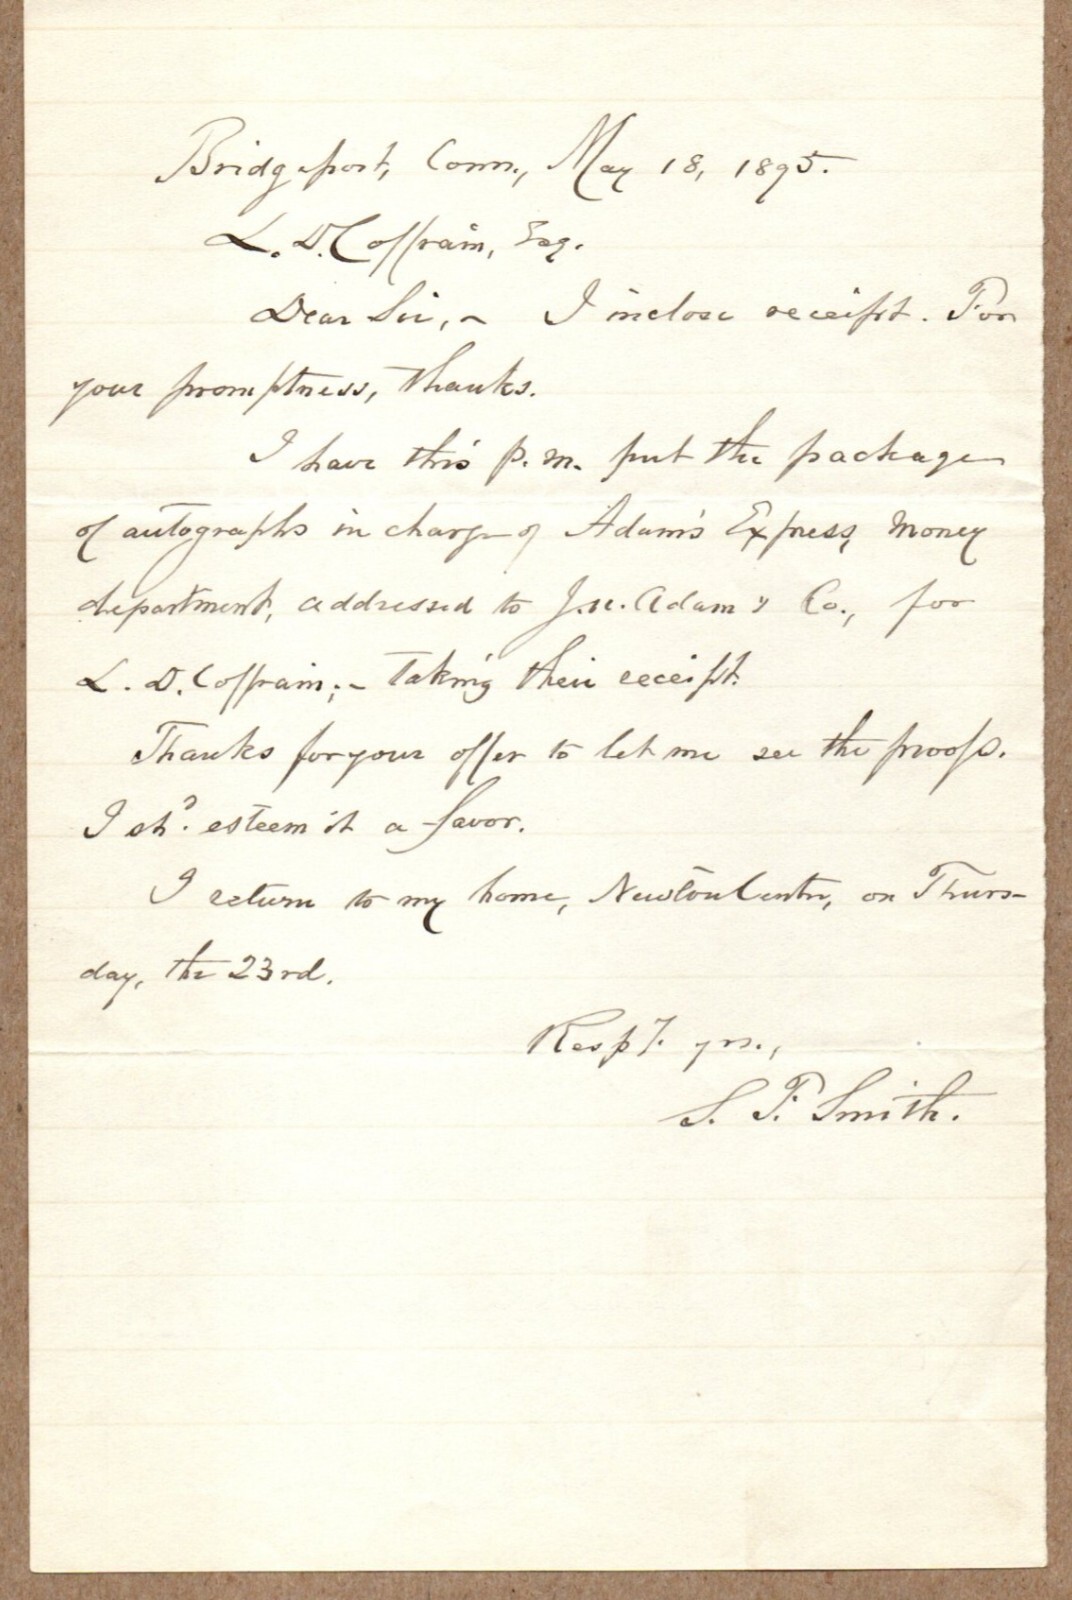 Bridgeport, Conn., May 18, 1895.
L. D. Coffrain, Esq.
Dear Sir, - I inclose receipt. For
your promptness, thanks.
I have this p.m. put the package
of autographs in charge of Adam's Express, Money
department, addressed to J. N. Adam & Co., for
L. D. Coffrain; - taking their receipt.
Thanks for your offer to let me see the proofs.
I shd. esteem it a favor.
I return to my home, Newton Centre, on Thurs-
day, the 23rd.
Respy. yrs.,
S. F. Smith.